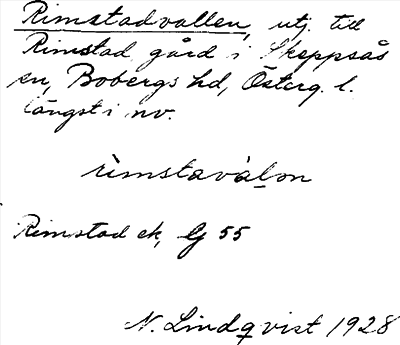 Rimstadvallen, utj. till
Rimstad gård i Skeppsås
sn, Bobergs hd, Österg. l.
längst i nv.
rìmstavàlən
Rimstad ek, G 55
N. Lindqvist 1928